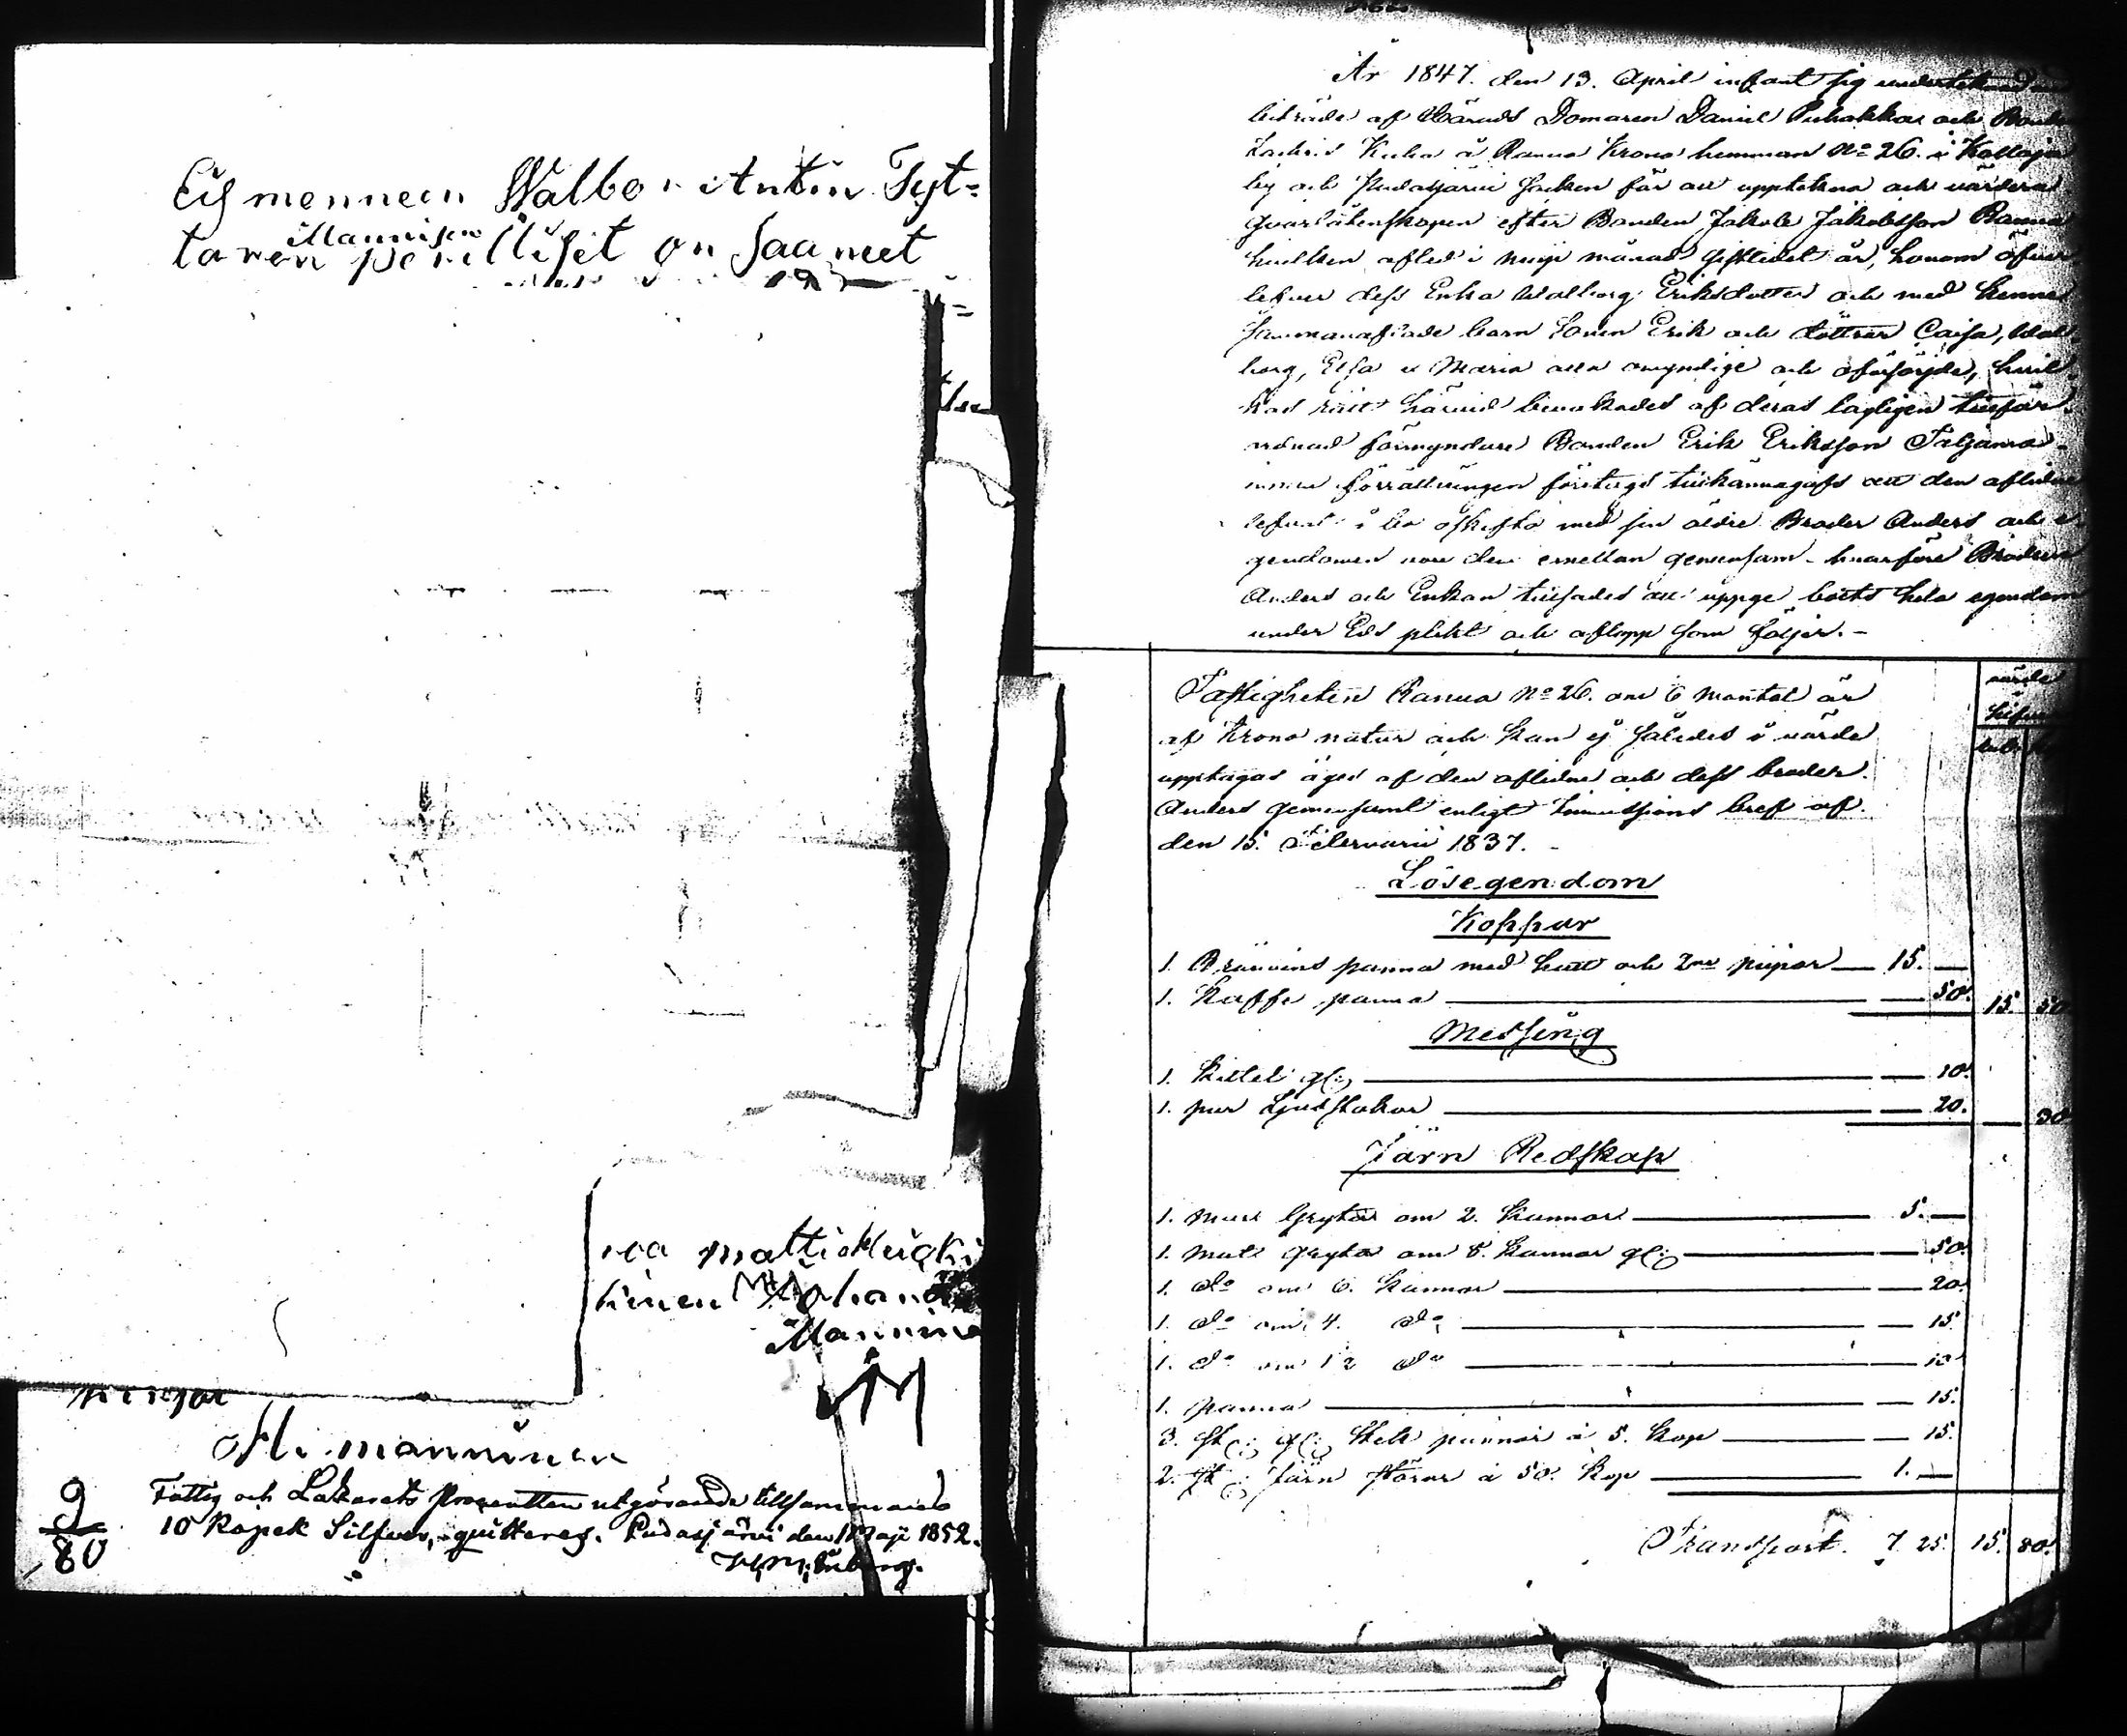 Eis menneen Walbor Antin Tyt-
Mannisen
taren perilliset on saaneet
matti
hinen Johan
Mannine
M
H. manninen
9
80
Fattig och Lazarets Procentten utgörande tillsammans
10 Kopek Silfver, quitteras. Pudasjärvi den 1 Maji 1852.
År 1847. den 13. April infant sig undertecknad med
biträde af Härads Domaren Daniel Puhakka och Bonden
Zachris Kuha å Ranua Krono hemman No 26. i Kollaja
by och Pudasjärvi Socken för att uppteckna och värdera
qvarlåtenskapen efter Bonden Jakob Jakobsson Ranua
hvilken afled i maji månad sistledet år, honom öfver
lefver dess Enka Walborg Eriksdotter och med henne
sammanaflade barn Sonen Erik och döttrar Caisa, Wal-
borg, Elsa o Maria alla omyndige och oförsörjde, hvil-
kas rätt härvid bevakades af deras lagligen tillför-
ordnad förmyndare Bonden Erik Eriksson
innan förrättningen företogs tillkännagafs att den aflidne
lefvat i bo oskifto med sin äldre Broder Anders och e-
gendomen vore dem emellan gemensam - hvarföre Brodren
Anders och Enkan tillsades att uppge boets hela egendom
under Eds plikt och aflopp som följer.-
värde
Fastigheten Ranua No 26. om mantal är
af Krono natur och kan ej således i värde
upptagas äges af den aflidne och dess broder.
Anders gemensamt enligt Immissions bref af.
den 15. Februarii 1837. -
Lösegendom
Koppar
1. Bränvins panna med hatt och 2ne pipor — 15. —
1. Kaffe panna — — 50. 15. 50
Messing
1. Kittel gl: — — 10.
1. par Ljusstakar — — 20. 30
Järn Redskap
1. Mur Gryta om 2. Kannor — 5. —
1. Mat gryta om 8. Kannor gl: — — 50.
1. do om 6. Kannor — — 20.
1. do om 4. do — — 15.
1. do om 1 2 do — — 10
1. panna — — 15.
3. st: gl: Stek pannor à 5. Kop — — 15.
2. st: Järn störar à 50. Kop — 1. —
Transport. 7. 25. 15. 80.